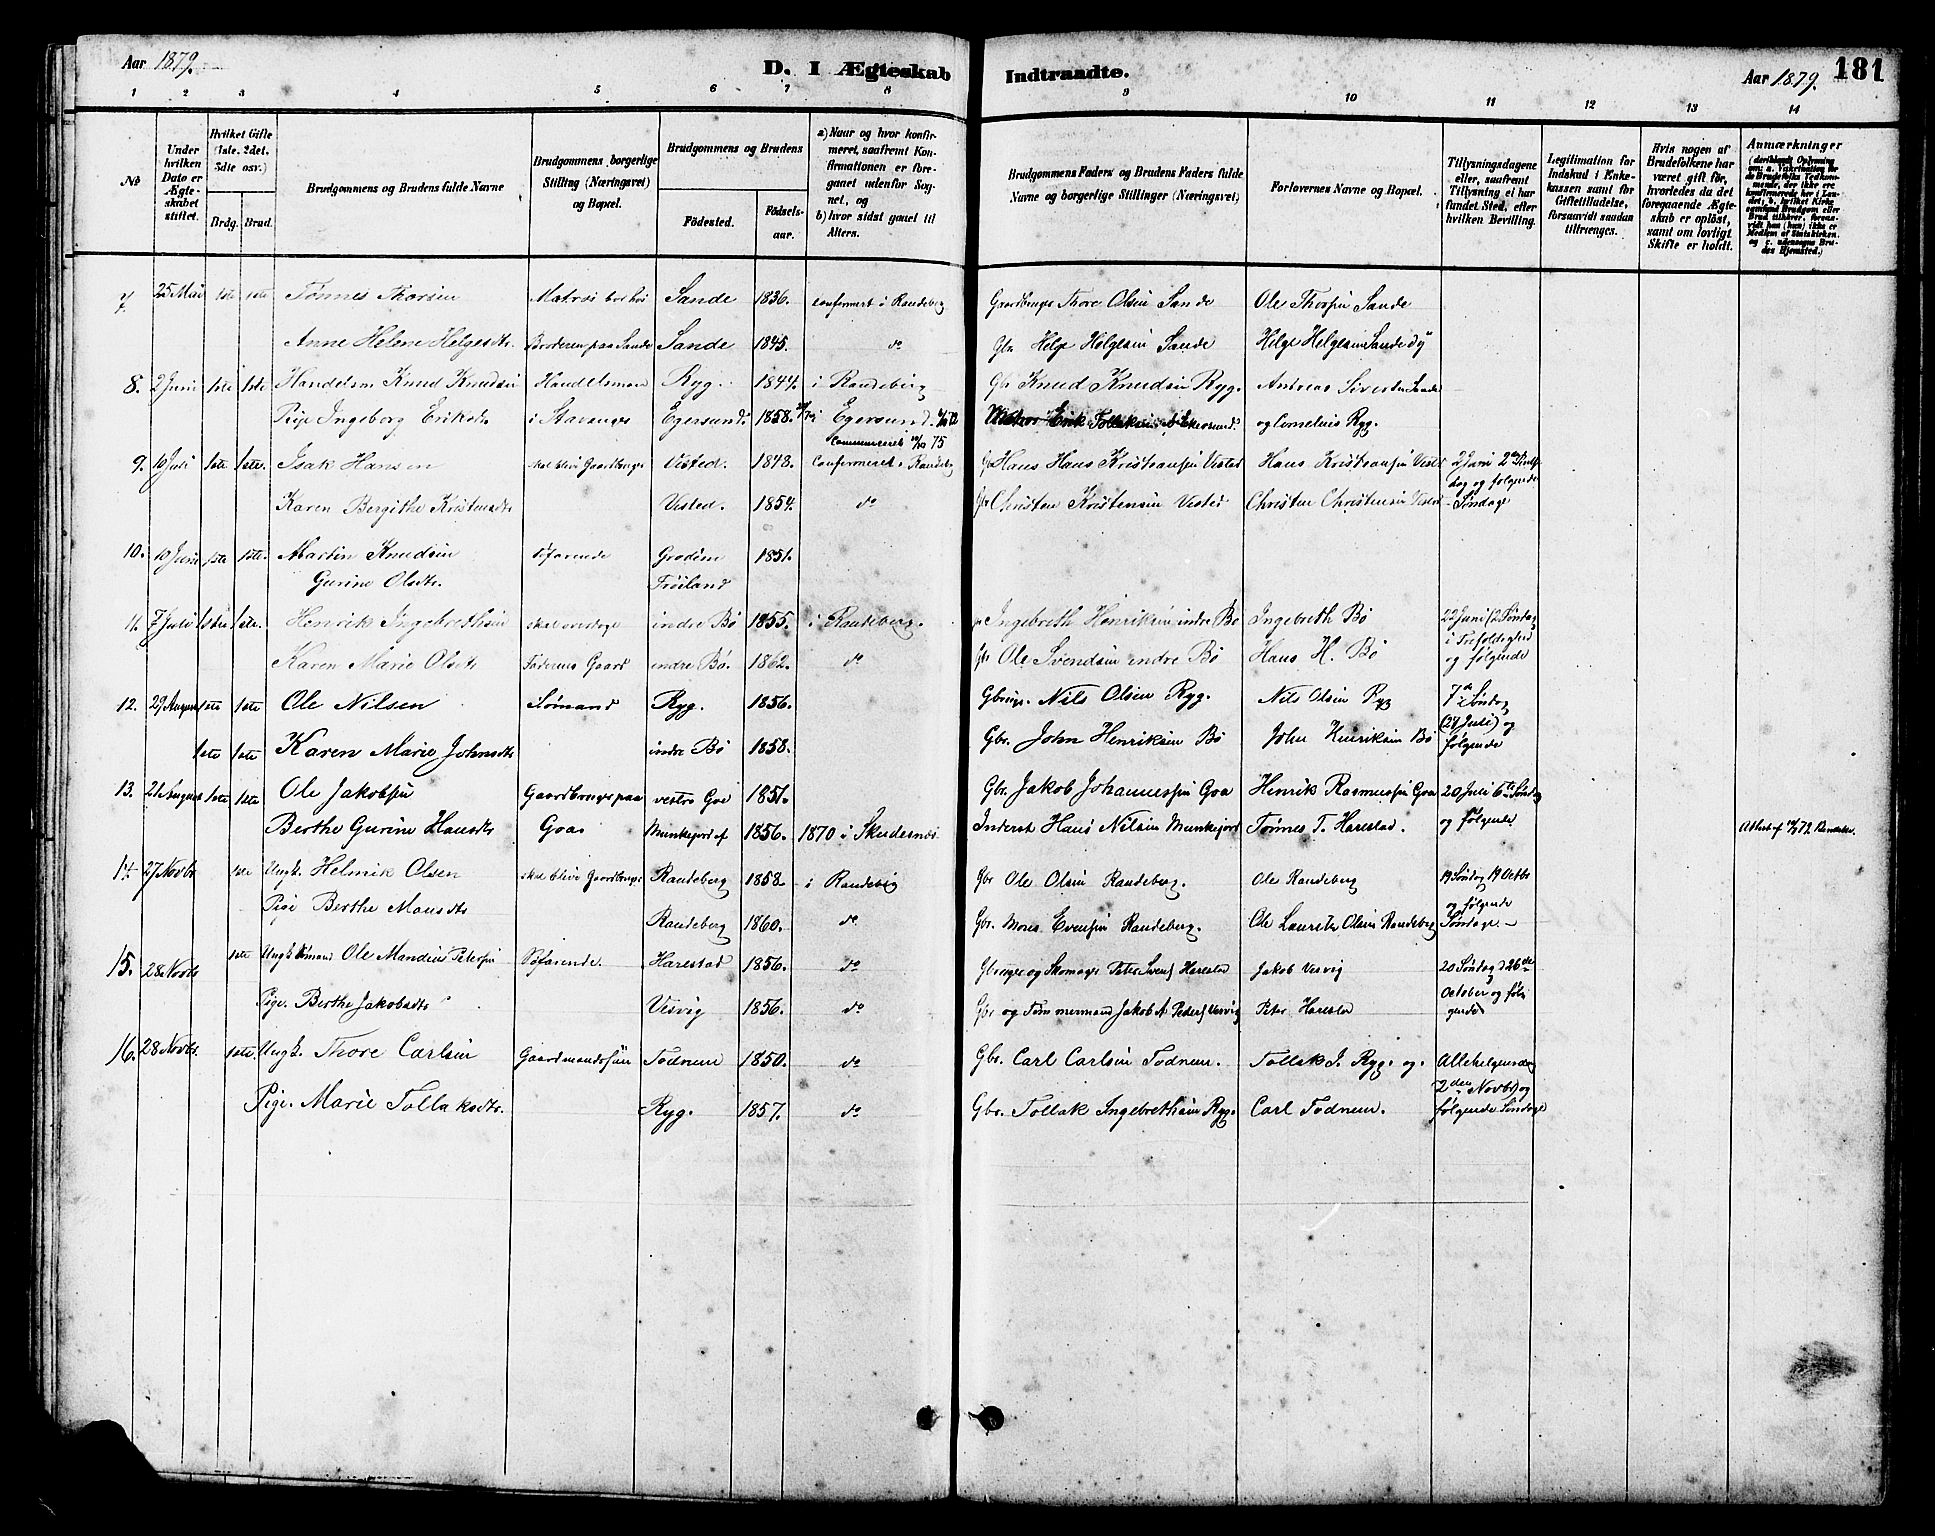 Aar 1879.
D. I Ægteskab Indtraadte.
Aar 1879.
181
1 2 3 4 5 6 7 8 9 10 11 12 13 14
No
Under hvilken Dato er Ægteskabet stiftet.
Hvilket Gifte (1ste, 2det, 3die osv.)
Brdg. Brud.
Brudgommens og Brudens fulde Navne
Brudgommens borgerlige Stilling (Næringsvei) og Bopæl.
Brudgommens og Brudens
Fødested.
Fødselsaar.
a) Naar og hvor konfirmeret, saafremt Konfirmationen er foregaaet udenfor Sognet, og
b) hvor sidst gaaet til Alters.
Brudgommens Faders og Brudens Faders fulde Navne og borgerlige Stillinger (Næringsvei)
Forlovernes Navne og Bopæl.
Tillysningsdagene eller, saafremt Tillysning ei har fundet Sted, efter hvilken Bevilling.
Legitimation for Indskud i Enkekassen samt for Giftetilladelse, forsaavidt saadan tiltrænges.
Hvis nogen af Brudefolkene har været gift før, hvorledes da det foregaaende Ægteskab er opløst, samt om lovligt Skifte er holdt.
Anmærkninger
7. 25 Mai 1ste 1ste Tønnes Thorsen Matros Sande 1836. confirmert i Randeberg Gaardbruger Thore Olsen Sande Ole Thorsen Sande
Anne Helene Helgesdtr. Broderen paa Sande Sande 1845. do Gbr. Helge Helgesen Sande Helge Helgesen Sande
8. 2 Juni 1ste 1ste Handelsm Knud Knudsen Handelsmand Ryg. 1844. i Randeberg Gbr Knud Knudsen Ryg. Andreas Sivertsen Sande
Pige Ingeborg Eriksdtr. i Stavanger Egersund. 1858. i Egersund. Erik Tollaksen og Cornelius Ryg.
9. 10 Juli 1ste 1ste. Isak Hansen skal blive Gaardbruger Visted. 1848. Confirmeret i Randeberg Hans Hans Kristiansen Visted Hans Kristiansen Visted 2 Juni 2den Pintsedag og følgende
Karen Bergithe Kristensdtr Visted. 1854. do Gbr Christen Kristensen Visted Christen Christensen Visted Søndage
10. 10 Juni 1ste 1ste. Martin Knudsen Søfarende Grødem 1851.
Gurine Olsdtr. Trøiland
11. 7 Juli 1ste 1ste. Henrik Ingebrethsen skal overtage indre Bø 1855. i Randeberg. Ingebreth Henriksen indre Bø Ingebreth Bø 22 Juni (2 Søndag i Trefoldighed
Karen Marie Olsdtr Faderens Gaard indre Bø. 1862. do Gbr Ole Svendsen indre Bø Hans H. Bø og følgende
12. 29 August 1ste 1ste Ole Nilsen Sømand Ryg. 1856. Gbruger. Nils Olsen Ryg. Nils Olsen Ryg 7de Søndag
1ste 1ste Karen Marie Johnsdtr indre Bø 1858. Gbr. John Henriksen Bø John Henriksen Bø (27 Juli) og følgende
13. 21 August 1ste 1ste Ole Jakobsen Gaardbruger paa vestre Goe 1851. Gbr. Jakob Johannessen Goa Henrik Rasmussen Goa 20 Juli 6te Søndag
Berthe Gurine Hansdtr Goa Munkejord 1856. 1870 i Skudesnæs. Inderst Hans Nilsen Munkejord Tønnes T. Harestad. og følgende
14. 27 Novbr 1ste Ungk. Helmik Olsen skal blive Gaardbruger Randeberg 1858. i Randeberg Gbr Ole Olsen Randeberg. Ole Randeberg 19 Søndag 19 Octbr og følgende
Pige Berthe Monsdtr Randeberg 1860. do Gbr. Mons Evensen Randeberg. Ole Lauritz Olsen Randeberg Søndage
15. 28 Novbr 1ste Ungk Sømand Ole Mandius Petersen Søfarende. Harestad 1856. do Gbruger og Skomager Peter Svends Harestad Jakob Vesvig 20 Søndag 26de
Pige. Berthe Jakobsdtr Vesvig 1856. do Gbr og Tømmermand Jakob A Peders Vesvig Peter Harestad October og følgende
16. 28 Novbr. 1ste Ungk. Thore Carlsen Gaardmandssøn Todnem 1850. do Gbr. Carl Carlsen Todnem. Tollak I. Ryg. og. Allehelgensdag
Pige. Marie Tollaksdtr. Ryg. 1857. do Gbr. Tollak Ingebrethsen Ryg. Carl Todnem. 2den Novbr og følgende Søndage